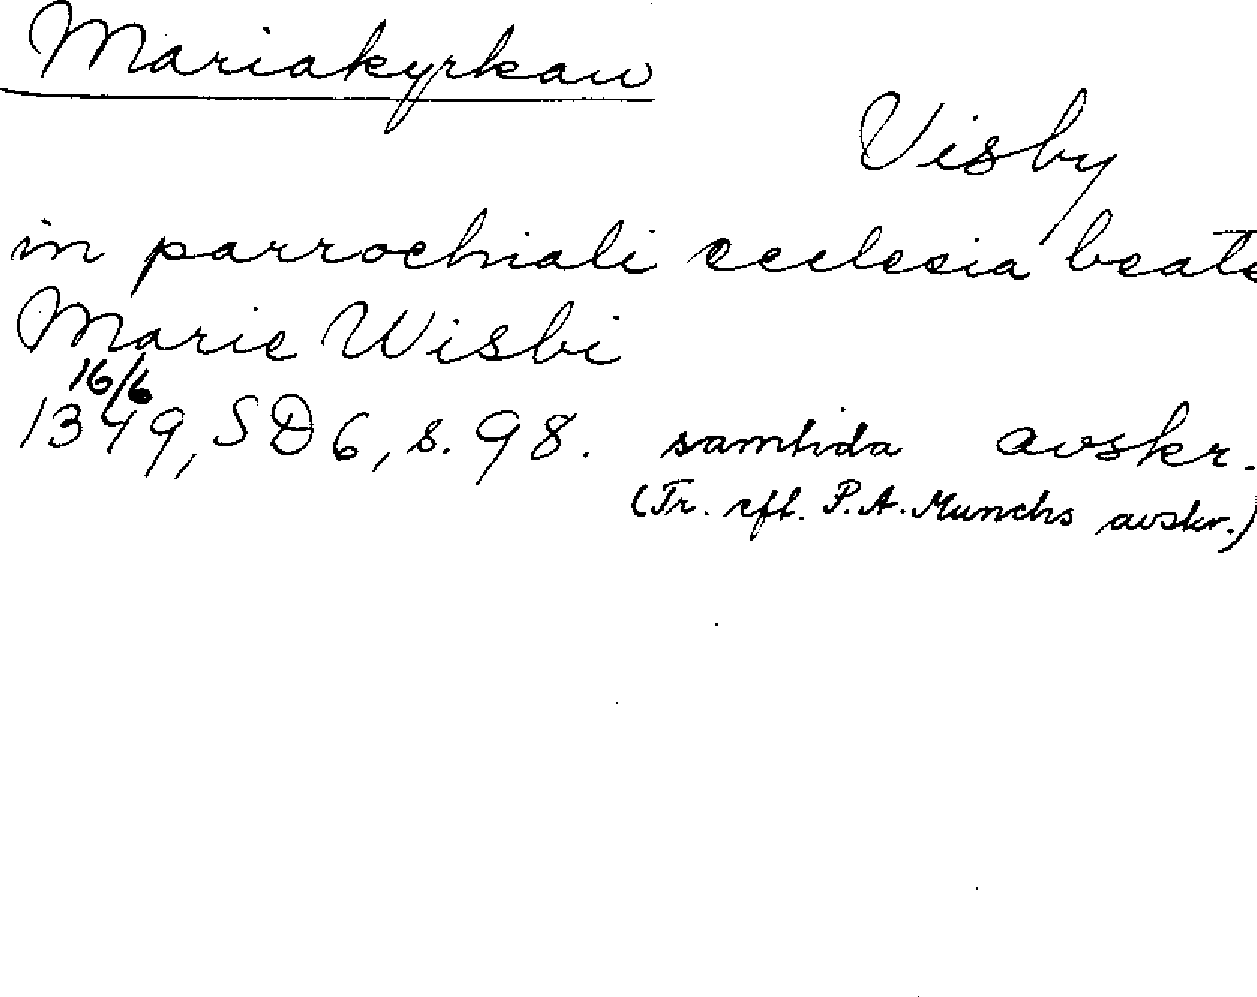 Mariakyrkan
Visby
in parrochiali ecclesia beate
Marie Wisbi
16/6
1349, SD 6, s. 98. samtida avskr.
(Tr. eft. P.A. Munchs avskr.)